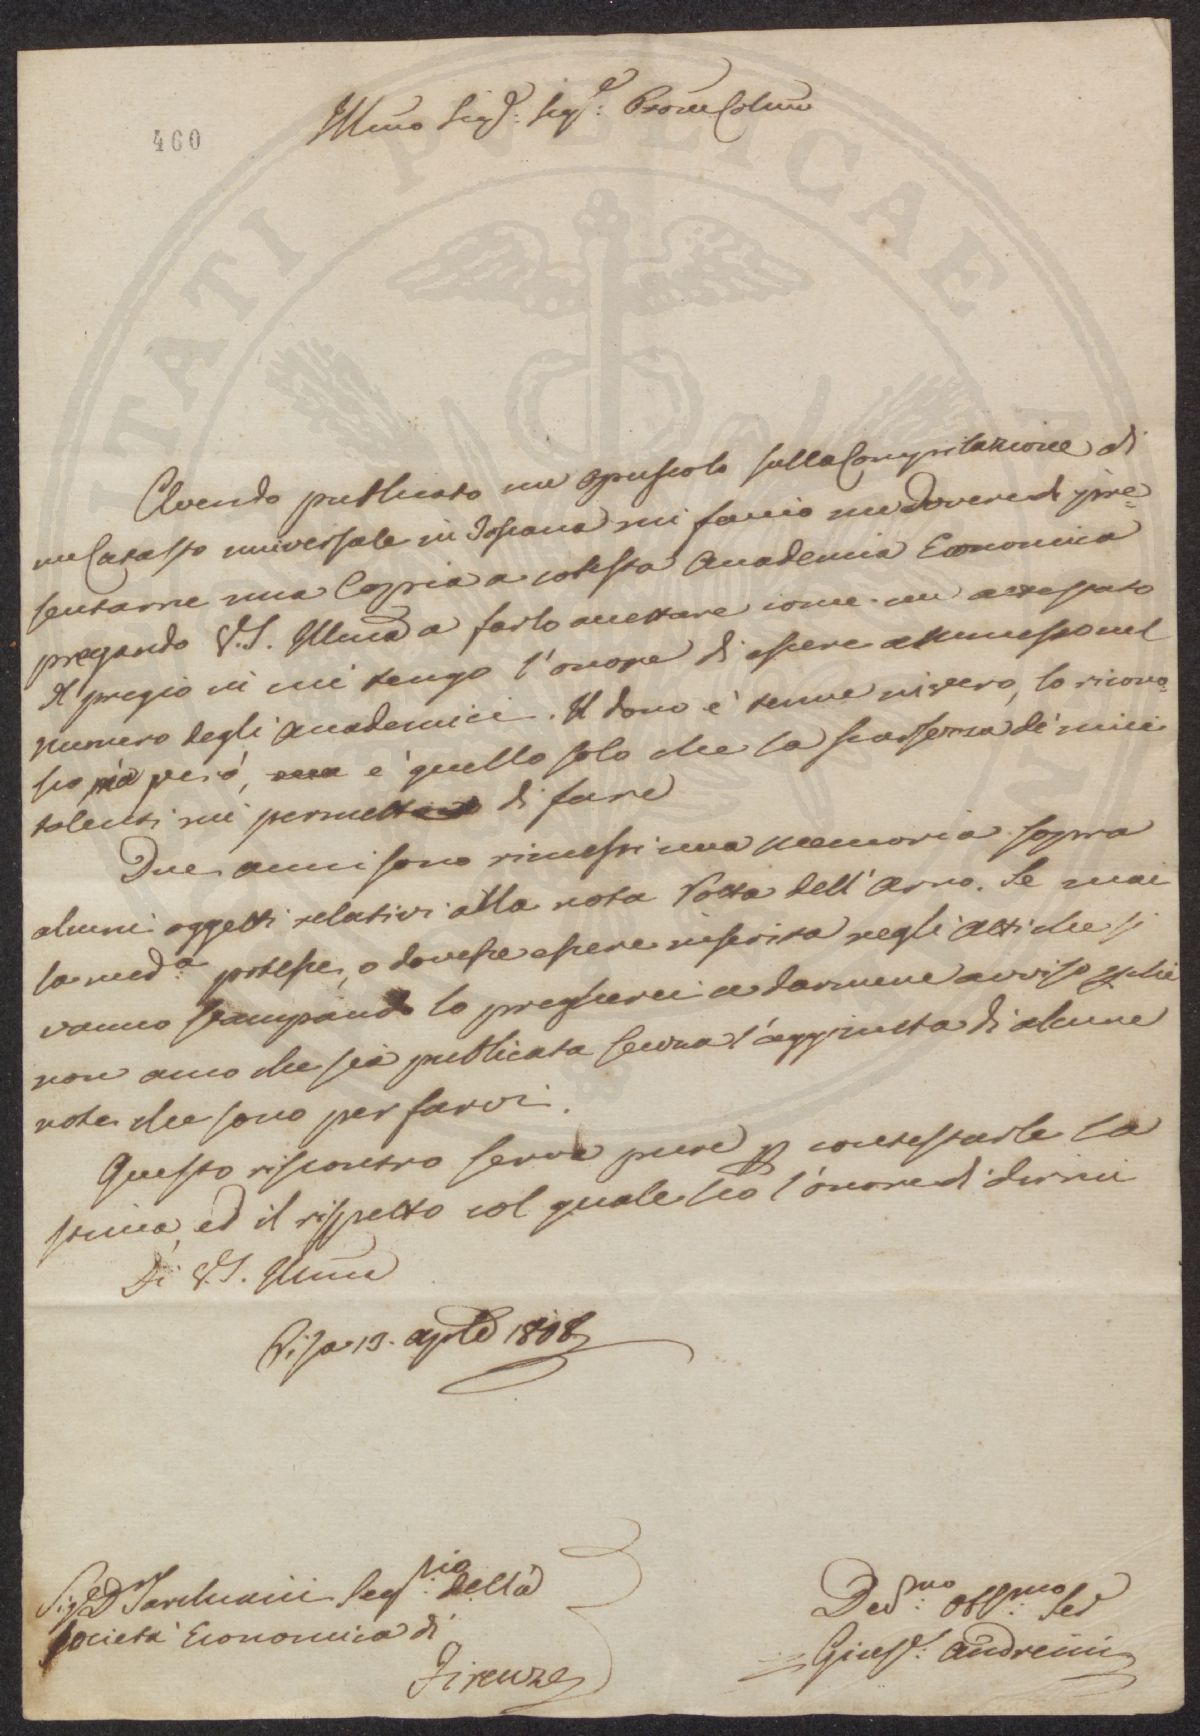 460
Illmo Sig.e Sig.e Prone Colmo
Avendo publicato un opuscolo sulla Compilazione di
un Catasto universale in Toscana mi faccio un dovere di pre=
sentarne una Copia a cotesta Accademia Economica
pregando V.S. Illma a farlo accettare come un attestato
Al pregio in cui tengo l'onore di essere ammesso nel
numero degli Accademici. Il dono è tenue in vero, lo ricono=
sco però, è quello solo che la scarsezza de' miei
talenti mi permette di fare
Due anni sono rimessi una memoria sopra
alcuni oggetti relativi alla nota Botta dell'Arno. Se mai
la med.a potesse, o dovesse essere inserita negli Atti che si
vanno stampando la pregherei a darmene avviso
non amo che sia publicata senza l'aggiunta di alcune
note che sono per farvi.
Questo riscontro serva pure p contestarle la
stima, ed il rispetto col quale ho l'onore di dirmi
Di V.S. Illma
Pisa 13. aple 1808
Sig.e D.r Tarchiani Seg.rio della
Società Economica di
Firenze
Dev.mo Obb.mo Ser
Gius.e Andreini